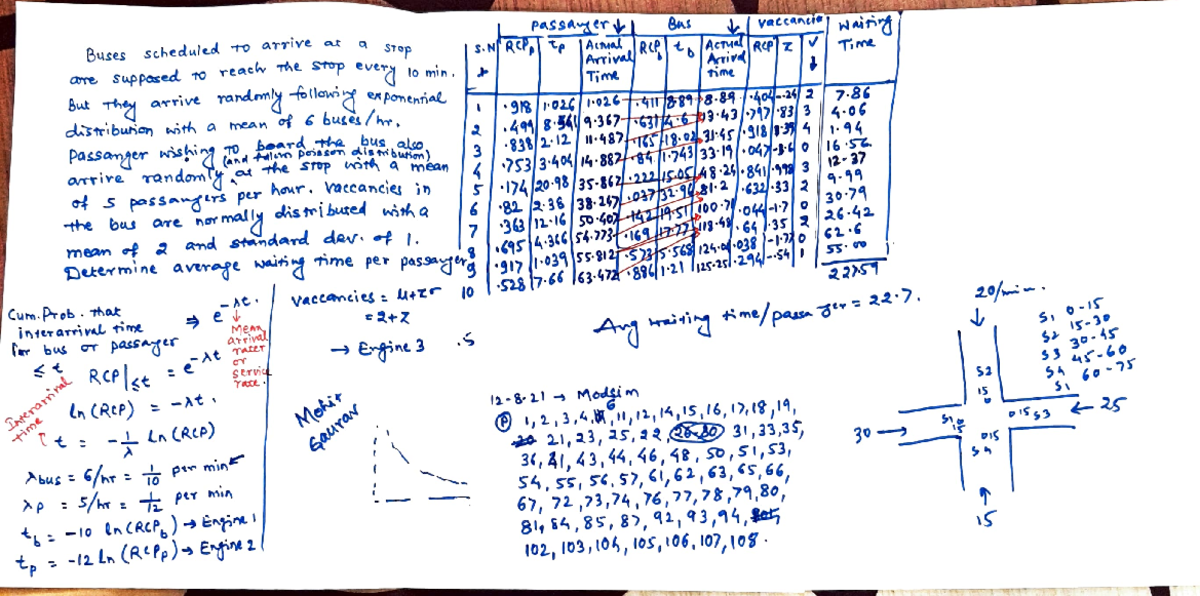 Buses scheduled to arrive at a stop
are supposed to reach the stop every 10 min.
But they arrive randomly following exponential
distribution with a mean of 6 buses/hr.
Passanger wishing to board the bus also
(and follow poisson distribution)
arrive randomly at the stop with a mean
of 5 passangers per hour. Vaccancies in
the bus are normally distributed with a
mean of 2 and standard dev. of 1.
Determine average waiting time per passanger
Passanger ↓ Bus ↓ Vaccancies Waiting
S.N RCPp tp Actual Arrival Time RCPb tb Actual Arrival time RCP z v ↓ Time
1 .918 1.026 1.026 .411 8.89 8.89 .404 -.24 2 7.86
2 .499 8.341 9.367 .631 4.6 13.43 .797 .83 3 4.06
3 .838 2.12 11.487 .165 18.02 31.45 .918 1.39 4 1.94
4 .753 3.404 14.887 .84 1.743 33.19 .047 -1.6 0 16.56
5 .174 20.98 35.867 .222 15.05 48.24 .841 .998 3 12.37
6 .82 2.38 38.247 .037 32.96 81.2 .632 .33 2 9.99
7 .363 12.16 50.407 .142 19.51 100.71 .044 -1.7 0 30.79
8 .695 4.366 54.773 .169 17.77 118.48 .64 .35 2 26.42
9 .917 1.039 55.812 .573 5.568 124.04 .038 -1.77 0 62.6
10 .528 7.66 63.472 .886 1.21 125.25 .294 -.54 1 55.00
227.59
Cum. Prob. that
interarrival time
for bus or passayer
≤ t
⇒ e^-λt.
Mean
arrival
rate
or
service
rate.
RCP|≤t = e^-λt
Interarrival
time
ln(RCP) = -λt.
t = -1/λ ln(RCP)
λbus = 6/hr = 1/10 per min
λp = 5/hr = 1/12 per min
tb = -10 ln(RCPb) → Engine 1
tp = -12 ln(RCPp) → Engine 2
Vaccancies = μ+zσ
= 2+z
→ Engine 3 .5
Avg waiting time/passanger = 22.7.
Mohit
Gaurav
12-8-21 → Modsim
P 1, 2, 3, 4, 6, 11, 12, 14, 15, 16, 17, 18, 19,
21, 23, 25, 22, 26-30 31, 33, 35,
36, 41, 43, 44, 46, 48, 50, 51, 53,
54, 55, 56, 57, 61, 62, 63, 65, 66,
67, 72, 73, 74, 76, 77, 78, 79, 80,
81, 84, 85, 87, 92, 93, 94,
102, 103, 104, 105, 106, 107, 108.
20/min.
S1 0-15
S2 15-30
S3 30-45
S4 45-60
S1 60-75
S2
15
0
30 → S1, 015
015 S3 ← 25
015
S4
15